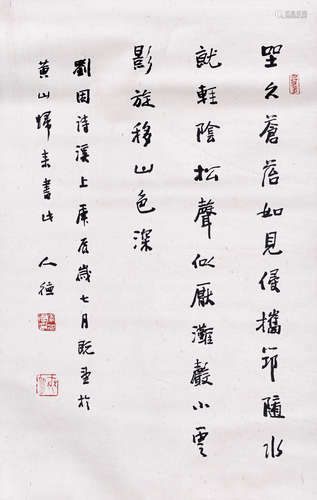 坐久蒼苔如見侵攜筇隨水
就輕陰松聲似厭灘聲小雲
影旋移山色深
劉因詩溪上庚辰歲七月既望於
黄山歸來書此 人德